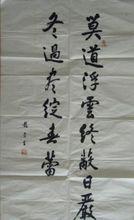 莫道浮雲終蔽日嚴
冬過盡綻春蕾